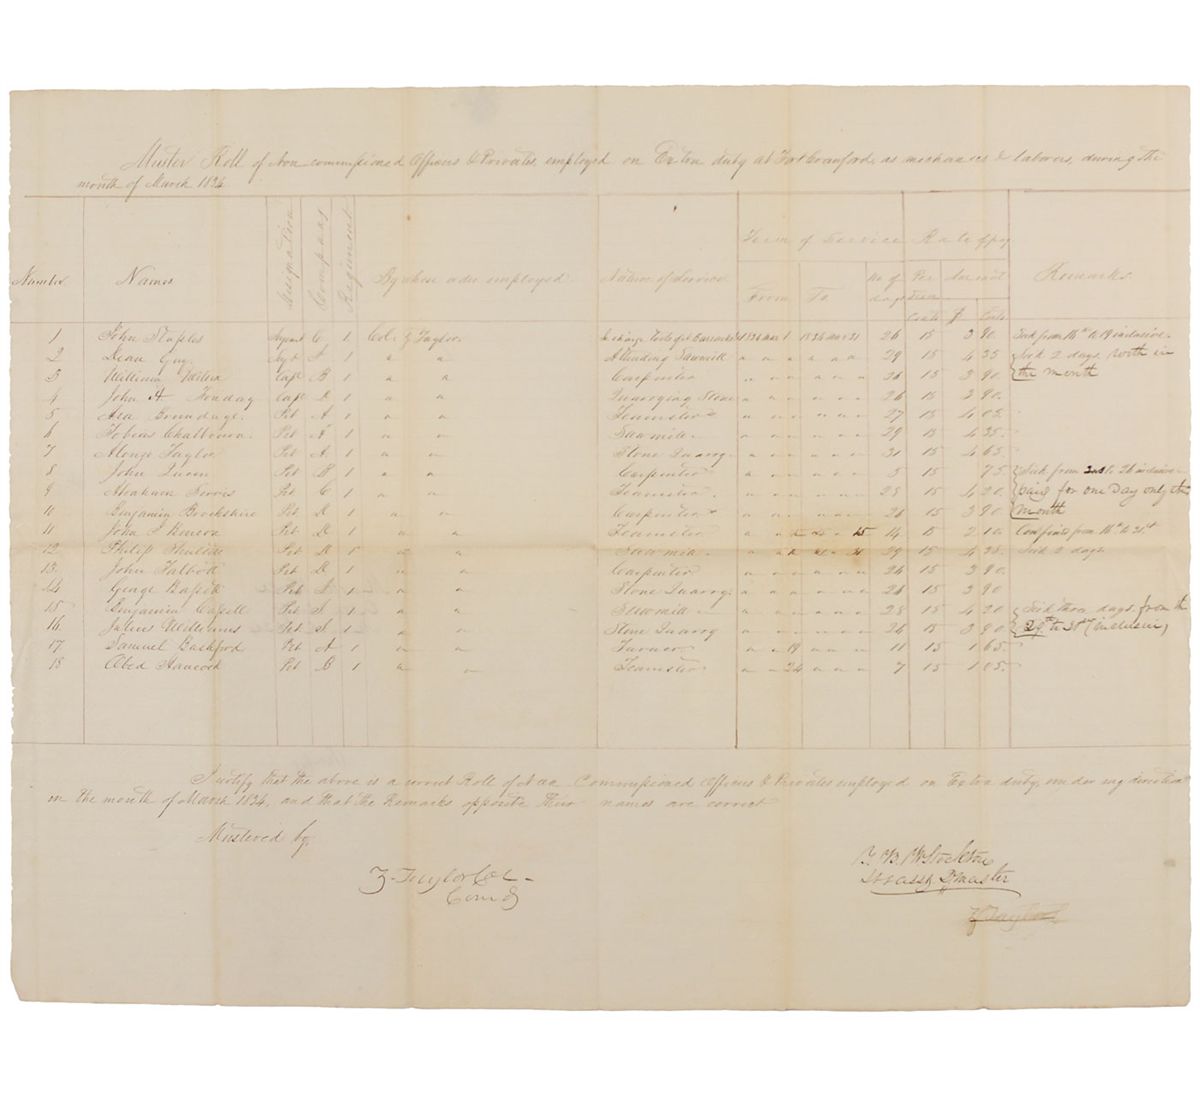 Muster Roll of Non commissioned Officers & Privates, employed on Extra duty at Fort Crawford, as mechanics & laborers, during the
month of March 1834
Number Names Designation Company Regiment By whose order employed Nature of Service Term of Service From To No of days Rate of pay Per Diem Cents Amount $ Cents Remarks
1 John Staples Sergeant C 1 Col. Z Taylor In charge Tools &c Barracks 1834 mar 1 1834 mar 31 26 15 3 90 Sick from 16th to 19 inclusive
2 Guy Sergt 1 " " Attending Sawmill " " " " " " 29 15 4 35 Sick 2 days
3 William Corpl B 1 " " Carpenter " " " " " " 26 15 3 90 the month
4 John A Corpl D 1 " " Quarrying Stone " " " " " " 26 15 3 90
5 Asa Brundage Pvt A 1 " " Teamster " " " " " " 27 15 4 05
6 Tobias Pvt A 1 " " Sawmill " " " " " " 29 15 4 35
7 Alonzo Taylor Pvt A 1 " " Stone Quarry " " " " " " 31 15 4 65
8 John Pvt B 1 " " Carpenter " " " " " " 5 15 75 Sick from to 26 inclusive
9 Abraham Pvt C 1 " " Teamster " " " " " " 28 15 4 20 for one Day only the
10 Benjamin Brookshire Pvt D 1 " " Carpenter " " " " " " 26 15 3 90 month
11 John Pvt D 1 " " Teamster " " " 15 14 15 2 10 Confined from 16th to 31st
12 Philip Pvt D 1 " " Sawmill " " " 31 29 15 4 35 Sick 2 days
13 John Talbott Pvt D 1 " " Carpenter " " " " " " 26 15 3 90
14 George Pvt 1 " " Stone Quarry " " " " " " 26 15 3 90
15 Benjamin Pvt 1 " " Sawmill " " " " " " 28 15 4 20 Sick three days, from the
16 Julius Williams Pvt 1 " " Stone Quarry " " " " " " 26 15 3 90 29th to 31st (inclusive)
17 Samuel Pvt A 1 " " Turner " " 19 " " " 11 15 1 65
18 Abed Hancock Pvt B 1 " " Teamster " " 24 " " " 7 15 1 05
I certify that the above is a correct Roll of Non Commissioned Officers & Privates employed on Extra duty, under my direction
in the month of March 1834, and that the Remarks opposite their names are correct
Mustered by,
Z. Taylor Col.
Comdg
Stockton
Master
Z Taylor